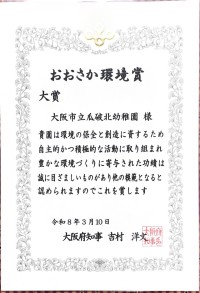 おおさか環境賞
大賞
大阪市立瓜破北幼稚園 様
貴園は環境の保全と創造に資するため
自主的かつ積極的な活動に取り組まれ
豊かな環境づくりに寄与された功績は
誠に目ざましいものがあり他の模範となると
認められますのでこれを賞します
令和8年3月10日
大阪府知事 吉村 洋文